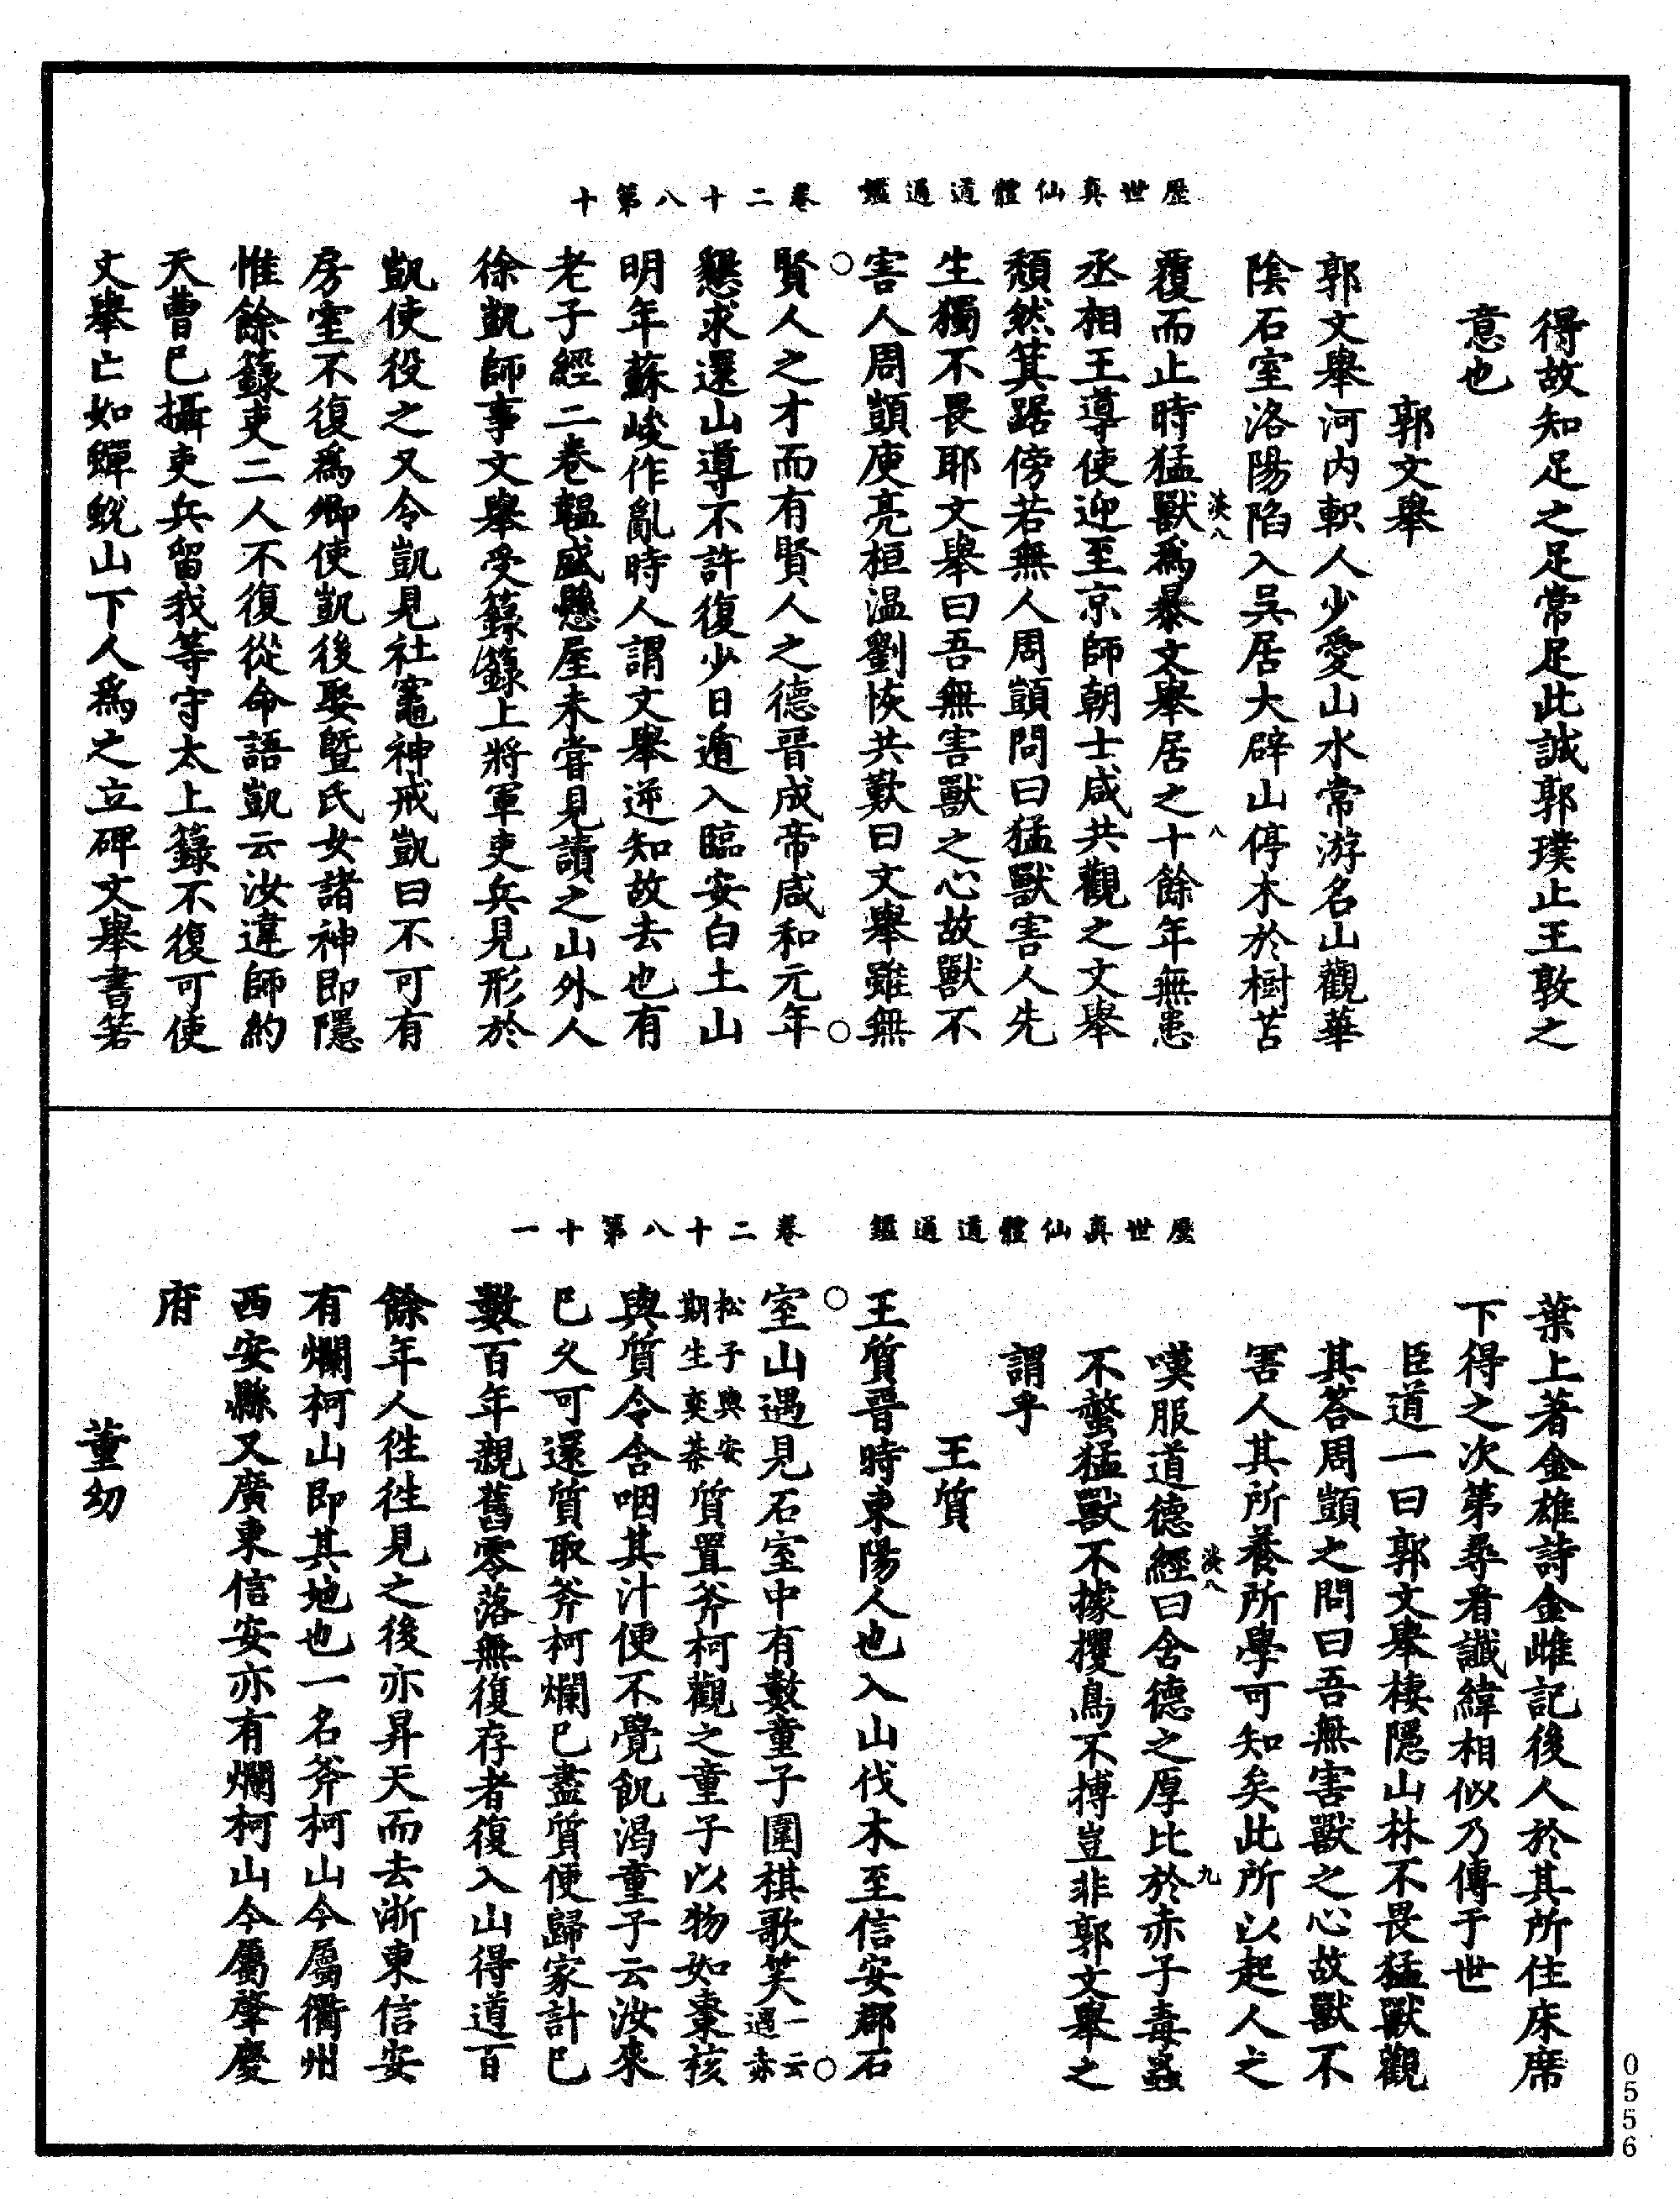 歷世真仙體道通鑑　卷二十八第十
得故知足之足常足此誠郭璞止王敦之
意也
郭文舉
郭文舉河內軹人少愛山水常游名山觀華
陰石室洛陽陷入吳居大辟山停木於樹苫
覆而止時猛獸為暴文舉居之十餘年無恙
淡八
八
丞相王導使迎至京師朝士咸共觀之文舉
頹然箕踞傍若無人周顗問曰猛獸害人先
生獨不畏耶文舉曰吾無害獸之心故獸不
害人周顗庾亮桓温劉恢共歎曰文舉雖無
賢人之才而有賢人之德晉成帝咸和元年
懇求還山導不許復少日遁入臨安白土山
明年蘇峻作亂時人謂文舉逆知故去也有
老子經二卷韞盛懸屋未嘗見讀之山外人
徐凱師事文舉受籙籙上將軍吏兵見形於
凱使役之又令凱見社竈神戒凱曰不可有
房室不復為卿使凱後娶暨氏女諸神即隱
惟餘籙吏二人不復從命語凱云汝違師約
天曹已攝吏兵留我等守太上籙不復可使
文舉亡如蟬蛻山下人為之立碑文舉書箬
歷世真仙體道通鑑　卷二十八第十一
葉上著金雄詩金雌記後人於其所住床席
下得之次第尋看讖緯相似乃傳于世
臣道一曰郭文舉棲隱山林不畏猛獸觀
其荅周顗之問曰吾無害獸之心故獸不
害人其所養所學可知矣此所以起人之
嘆服道德經曰含德之厚比於赤子毒蟲
淡八
九
不螫猛獸不據攫鳥不搏豈非郭文舉之
謂乎
王質
王質晉時東陽人也入山伐木至信安郡石
室山遇見石室中有數童子圍棋歌笑一云遇赤
松子與安期生奕棊質置斧柯觀之童子以物如棗核
與質令含咽其汁便不覺飢渴童子云汝來
已久可還質取斧柯爛已盡質便歸家計已
數百年親舊零落無復存者復入山得道百
餘年人徃徃見之後亦昇天而去浙東信安
有爛柯山即其地也一名斧柯山今屬衢州
西安縣又廣東信安亦有爛柯山今屬肇慶
府
董幼
0556